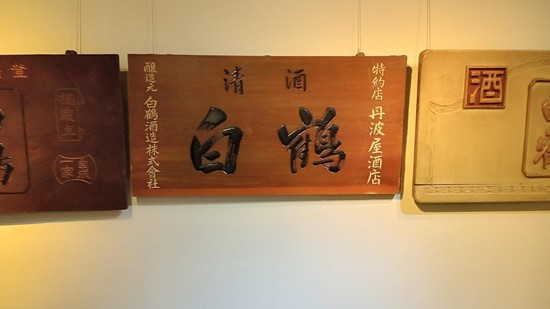 清酒
白鶴
醸造元 白鶴酒造株式會社
特約店 丹波屋酒店
登
酒